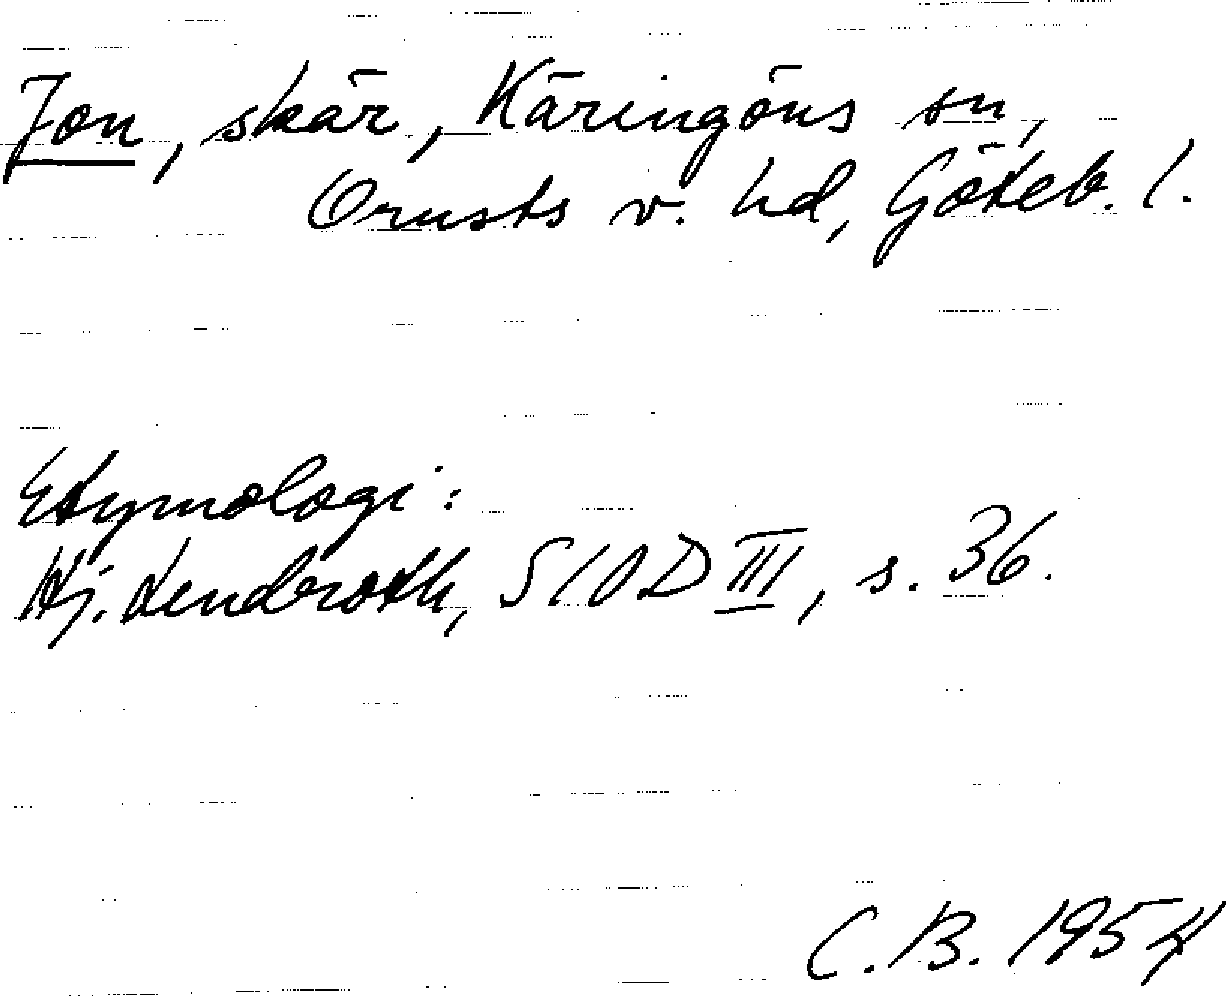 Jon, skär, Käringöns sn,
Orusts v. hd, Göteb. l.
Etymologi:
Hj. Lindroth, SIOD III, s. 36.
C.B. 1954